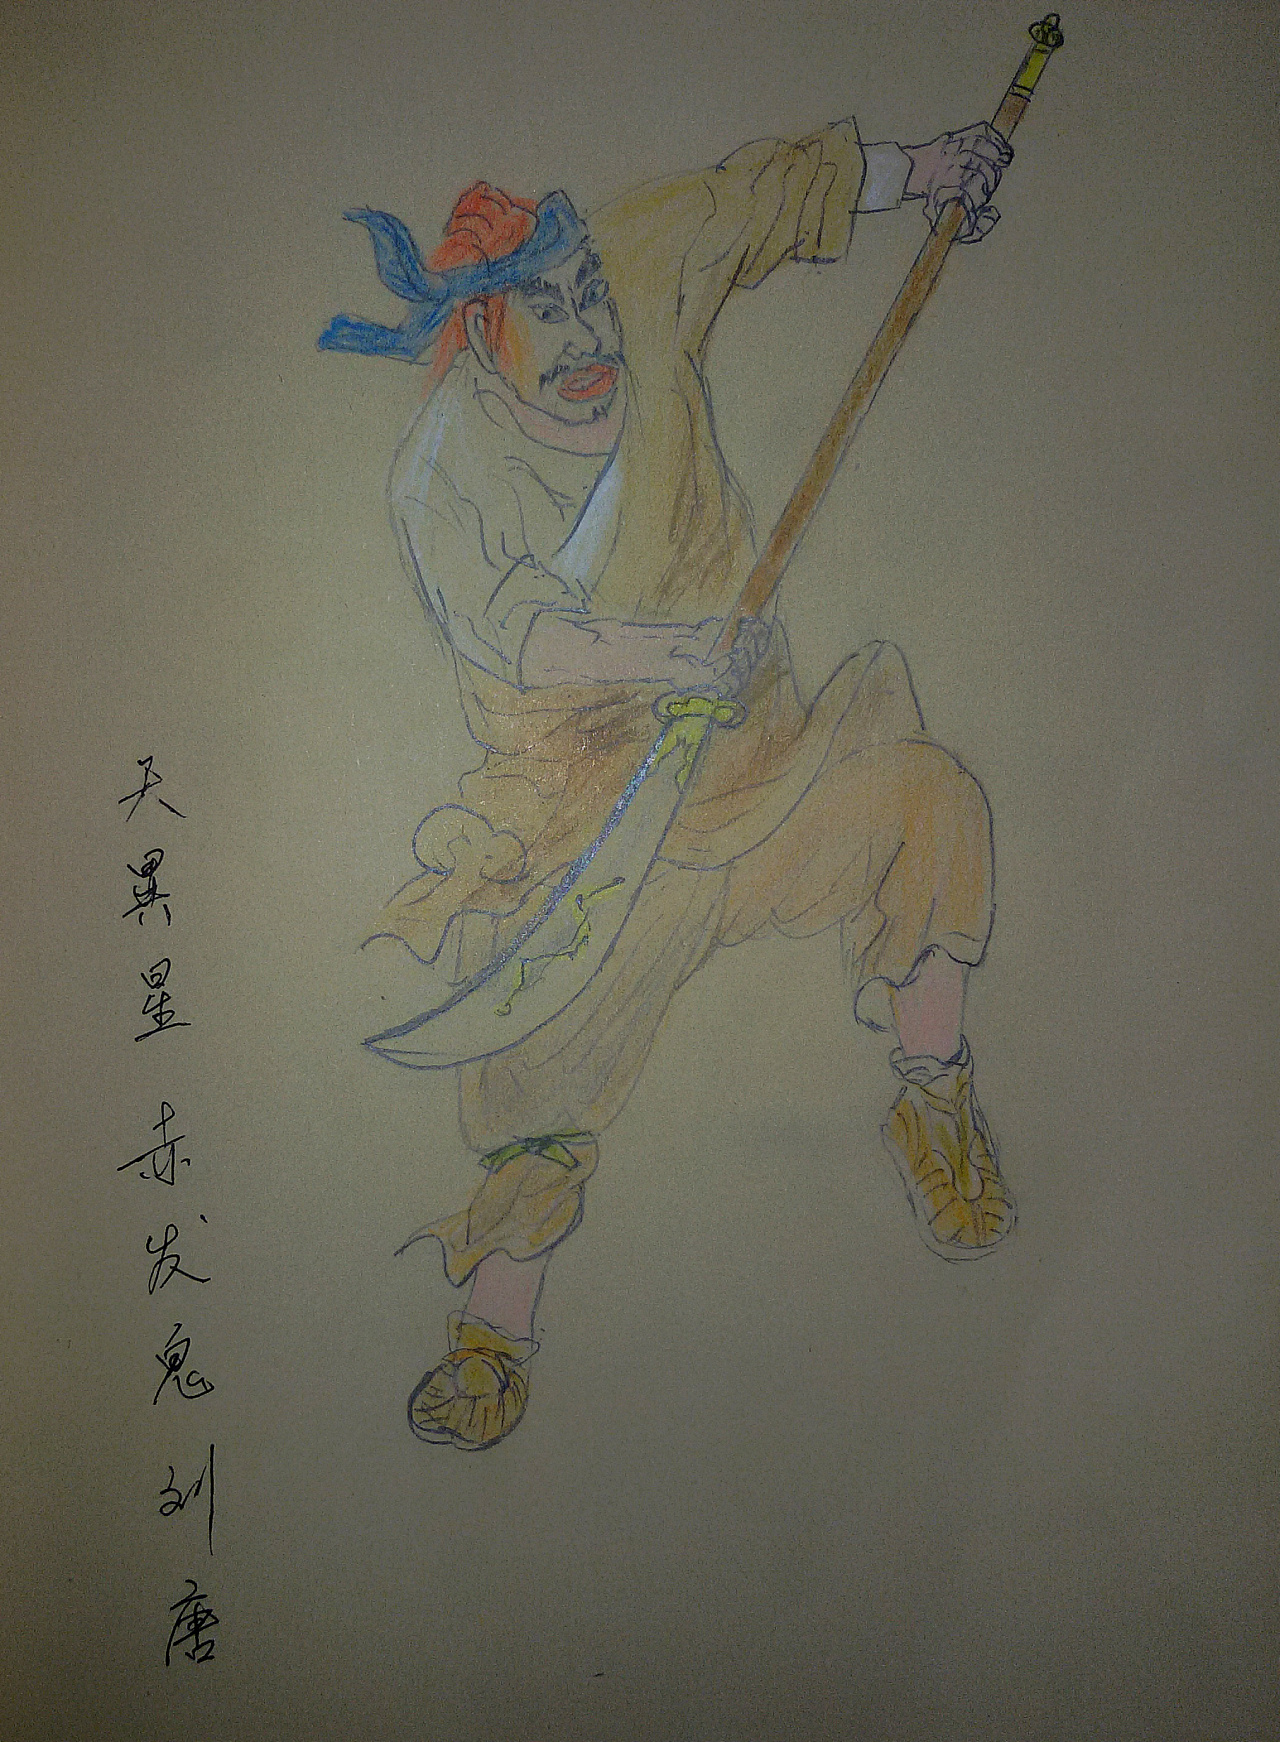 天異星 赤发鬼 刘唐